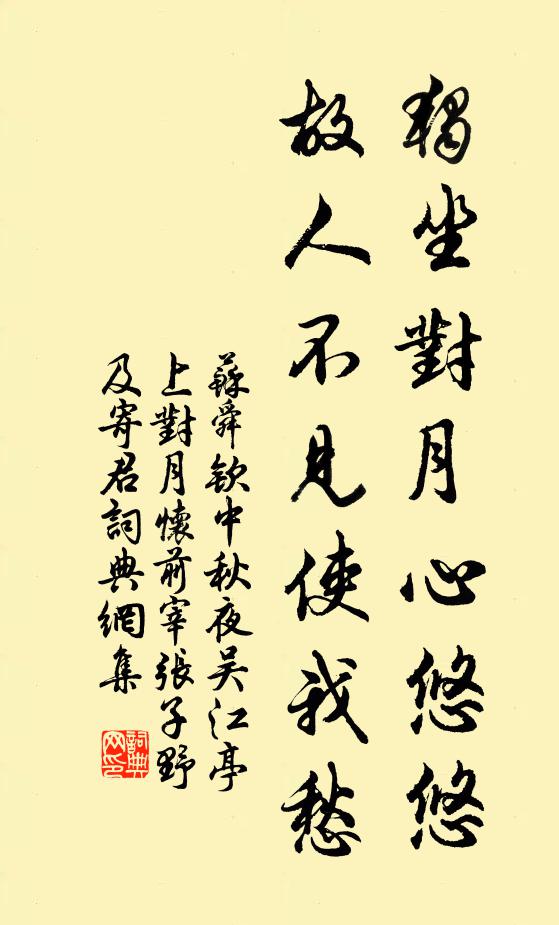 獨坐對月心悠悠
故人不見使我愁
蘇舜欽中秋夜吳江亭
上對月懷前宰張子野
及寄君詞典網集
詞典
网印